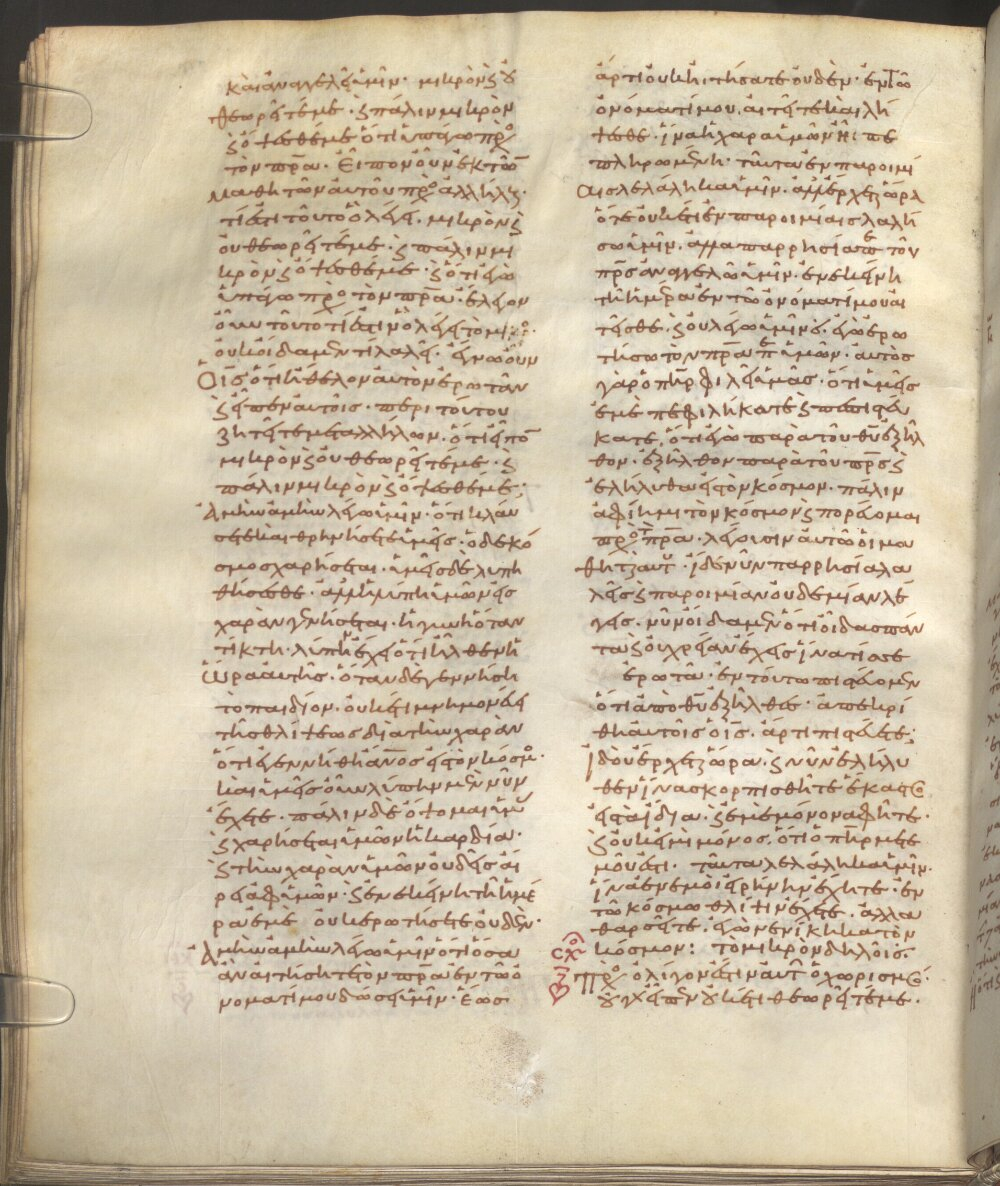 καὶ ἀναγγελεῖ ὑμῖν· μικρὸν ϗ οὐ
θεωρεῖτέ με· ϗ πάλιν μικρὸν
ϗ ὄψεσθέ με ὅτι ὑπάγω πρὸς
τὸν πρ̅α· Εἶπον οὖν ἐκ τῶν
μαθητῶν αὐτοῦ πρὸς ἀλλήλους·
τί ἐστι τοῦτο ὃ λέγει· μικρὸν ϗ
οὐ θεωρεῖτέ με· ϗ πάλιν μι
κρὸν ϗ ὄψεσθέ με· ϗ ὅτι ἐγὼ
ὑπάγω πρὸς τὸν πρ̅α· ἔλεγον
οὖν τοῦτο τί ἐστιν ὃ λέγει τὸ μικρόν·
οὐκ οἴδαμεν τί λαλεῖ· ἔγνω οὖν
ὁ ι̅ς ὅτι ἤθελον αὐτὸν ἐρωτᾶν
ϗ εἶπεν αὐτοῖς· περὶ τούτου
ζητεῖτε μετ ἀλλήλων· ὅτι εἶπον
μικρὸν ϗ οὐ θεωρεῖτέ με· ϗ
πάλιν μικρὸν ϗ ὄψεσθέ με·
Ἀμὴν ἀμὴν λέγω ὑμῖν· ὅτι κλαύ
σετε καὶ θρηνήσετε ὑμεῖς· ὁ δὲ κό
σμος χαρήσεται· ὑμεῖς δὲ λυπη
θήσεσθε· ἀλλ ἡ λύπη ὑμῶν εἰς
χαρὰν γενήσεται· ἡ γυνὴ ὅταν
τίκτη· λύπην ἔχει ὅτι ἦλθεν ἡ
ὥρα αὐτῆς· ὅταν δὲ γεννήση
τὸ παιδίον· οὐκέτι μνημονεύει
τῆς θλίψεως διὰ τὴν χαρὰν
ὅτι ἐγεννήθη ἄνο̅ς εἰς τὸν κόσμον·
καὶ ὑμεῖς οὖν λύπην μὲν νῦν
ἔχετε· πάλιν δὲ ὄψομαι ὑμᾶς
ϗ χαρήσεται ὑμῶν ἡ καρδία·
ϗ τὴν χαρὰν ὑμῶν οὐδεὶς αἴ
ρει ἀφ ὑμῶν· ϗ ἐν ἐκείνη τῆ ἡμέ
ρα ἐμὲ οὐκ ἐρωτήσετε οὐδέν·
Ἀμὴν ἀμὴν λέγω ὑμῖν ὅτι ὅσα
ἂν αἰτήσητε τὸν πρ̅α ἐν τῶ ὀ
νόματί μου δώσει ὑμῖν· ἕως
ἄρτι οὐκ ἠτήσατε οὐδὲν· ἐν τῶ
ὀνόματί μου, αἰτεῖτε καὶ λή
ψεσθε· ἵνα ἡ χαρὰ ὑμῶν ἦ πε
πληρωμένη· ταῦτα ἐν παροιμί
αις λελάληκα ὑμῖν. ἀλλ ἔρχεται ὥρα
ὅτε οὐκέτι ἐν παροιμίαις λαλή
σω ὑμῖν. ἀλλὰ παρρησία περὶ τοῦ
πρ̅ς ἀναγγελῶ ὑμῖν· ἐν ἐκείνη
τῆ ἡμέρα ἐν τῶ ὀνόματί μου αἰ
τήσεσθε· ϗ οὐ λέγω ὑμῖν ὅτι ἐγὼ ἐρω
τήσω τὸν πρ̅α περὶ ὑμῶν· αὐτὸς
γὰρ ὁ πη̅ρ φιλεῖ ὑμᾶς· ὅτι ὑμεῖς
ἐμὲ πεφιλήκατε ϗ πεπιστεύ
κατε, ὅτι ἐγὼ παρὰ τοῦ θυ̅ ἐξῆλ
θον· ἐξῆλθον παρὰ τοῦ πρ̅ς ϗ
ἐλήλυθα εἰς τὸν κόσμον· πάλιν
ἀφίημι τὸν κόσμον ϗ πορεύομαι
πρὸς τὸν πρ̅α· λέγουσιν αὐτῶ οἱ μα
θηταὶ αὐτοῦ· ἴδε νῦν παρρησία λα
λεῖς ϗ παροιμίαν οὐδεμίαν λέ
γεις· νῦν οἴδαμεν ὅτι οἶδας πάν
τα ϗ οὐ χρείαν ἔχεις ἵνα τίς σε
ἐρωτᾶ· ἐν τούτω πιστεύομεν
ὅτι ἀπὸ θυ̅ ἐξῆλθες· ἀπεκρί
θη αὐτοῖς ὁ ι̅ς· ἄρτι πιστεύετε;
ἰδοὺ ἔρχεται ὥρα· ϗ νῦν ἐλήλυ
θεν ἵνα σκορπισθῆτε ἕκαστος
εἰς τὰ ἴδια· ϗ ἐμὲ μόνον ἀφῆτε·
ϗ οὐκ εἰμὶ μόνος· ὅτι ὁ πη̅ρ μετ ε
μοῦ ἐστι· ταῦτα λελάληκα ὑμῖν·
ἵνα ἐν ἐμοὶ εἰρήνην ἔχητε· ἐν
τῶ κόσμω θλίψιν ἔχετε· ἀλλὰ
θαρσεῖτε, ἐγὼ νενίκηκα τὸν
κόσμον: τὸ μικρὸν δηλοῖ
πρὸς ὀλίγον ἐστὶν αὐτ ὁ χωρισμὸς·
οὐχ εἶπεν οὐκέτι θεωρεῖτέ με·